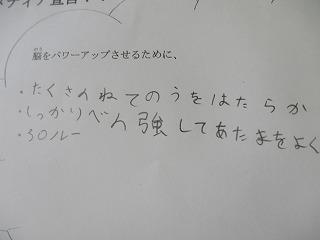 メディア宣言
脳をパワーアップさせるために、
・たくさんねてのうをはたらか
・しっかりべん強してあたまをよく
・30ルー